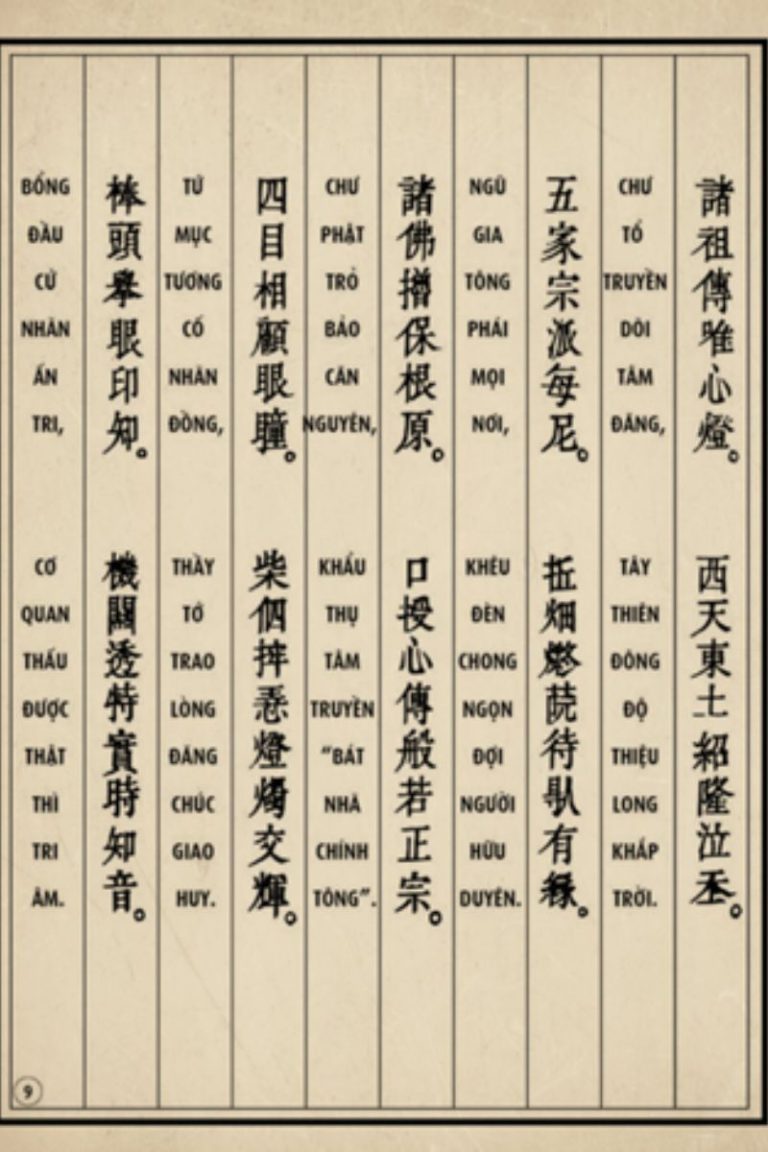 諸祖傳唯心燈。
西天東土紹隆泣𡗶。
CHƯ TỔ TRUYỀN DÕI TÂM ĐĂNG,
TÂY THIÊN ĐÔNG ĐỘ THIỆU LONG KHẮP TRỜI.
五家宗派每尼。
畑待𠊛有緣。
NGŨ GIA TÔNG PHÁI MỌI NƠI,
KHÊU ĐÈN CHONG NGỌN ĐỢI NGƯỜI HỮU DUYÊN.
諸佛保根原。
口授心傳般若正宗。
CHƯ PHẬT TRỎ BẢO CĂN NGUYÊN,
KHẨU THỤ TÂM TRUYỀN “BÁT NHÃ CHÍNH TÔNG”.
四目相顧眼瞳。
柴伵𢚸燈燭交輝。
TỨ MỤC TƯƠNG CỐ NHÃN ĐỒNG,
THẦY TỚ TRAO LÒNG ĐĂNG CHÚC GIAO HUY.
棒頭舉眼印知。
機關透特實時知音。
BỔNG ĐẦU CỬ NHÃN ẤN TRI,
CƠ QUAN THẤU ĐƯỢC THẬT THÌ TRI ÂM.
9